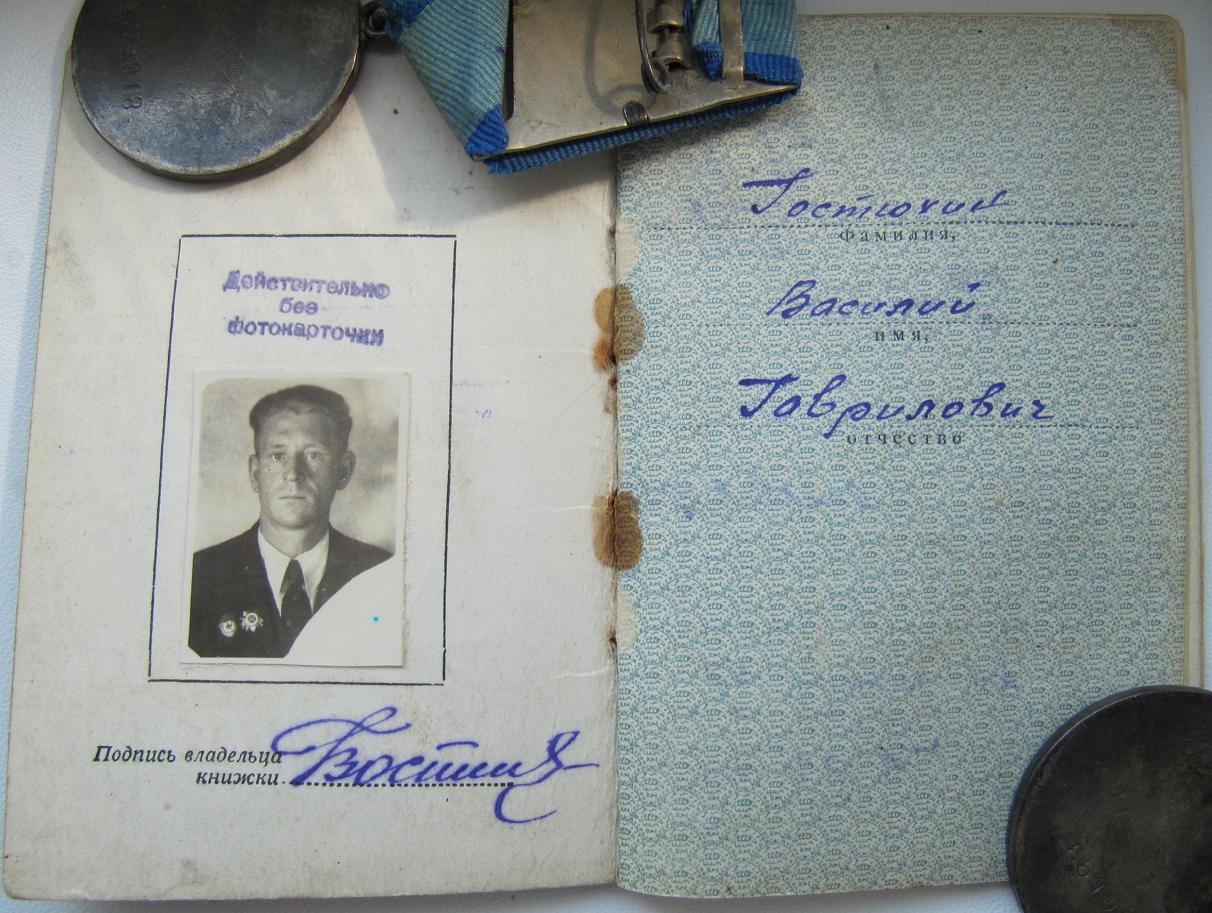 Действительно
без
фотокарточки
Подпись владельца
книжки
Гостюхин
фамилия,
Василий
имя,
Гаврилович
отчество